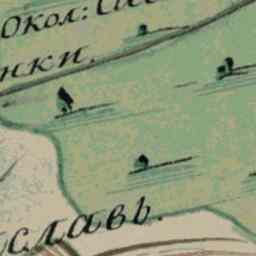 Окол:
нки.
славь.